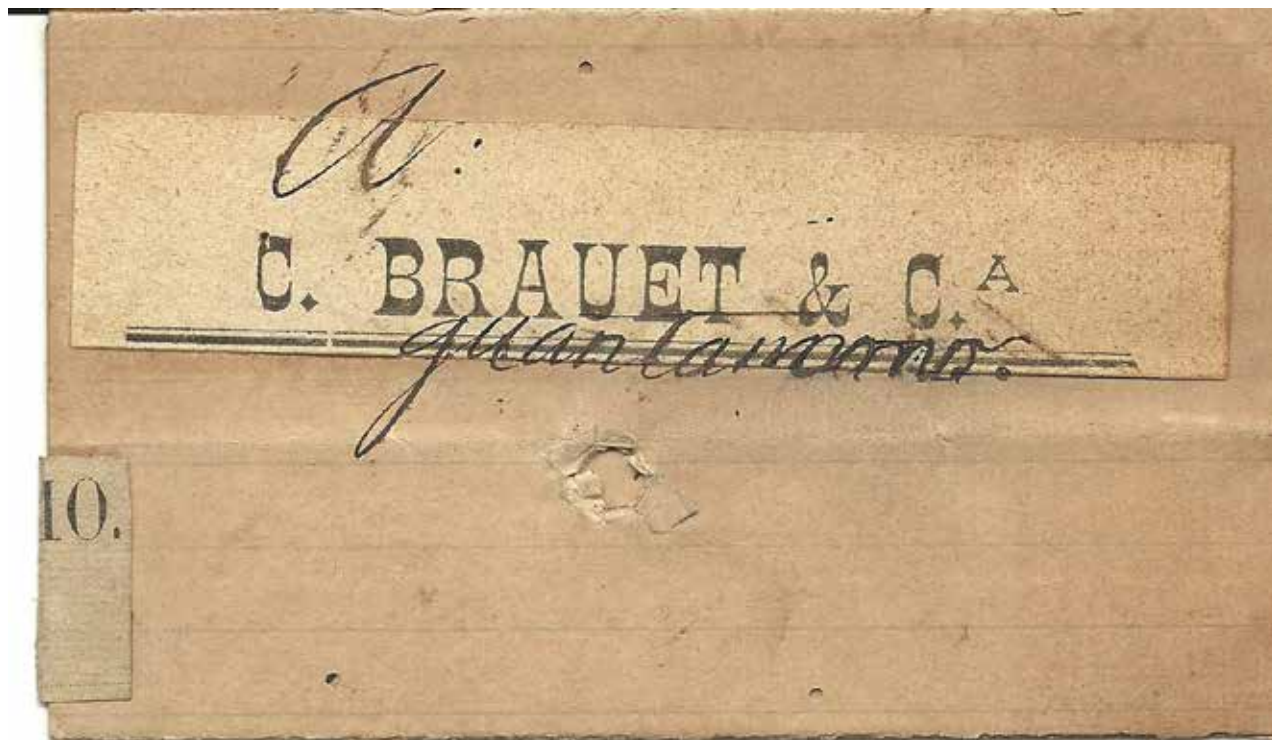 A:
C. BRAUET & C.ᴬ
guantanamo.
10.